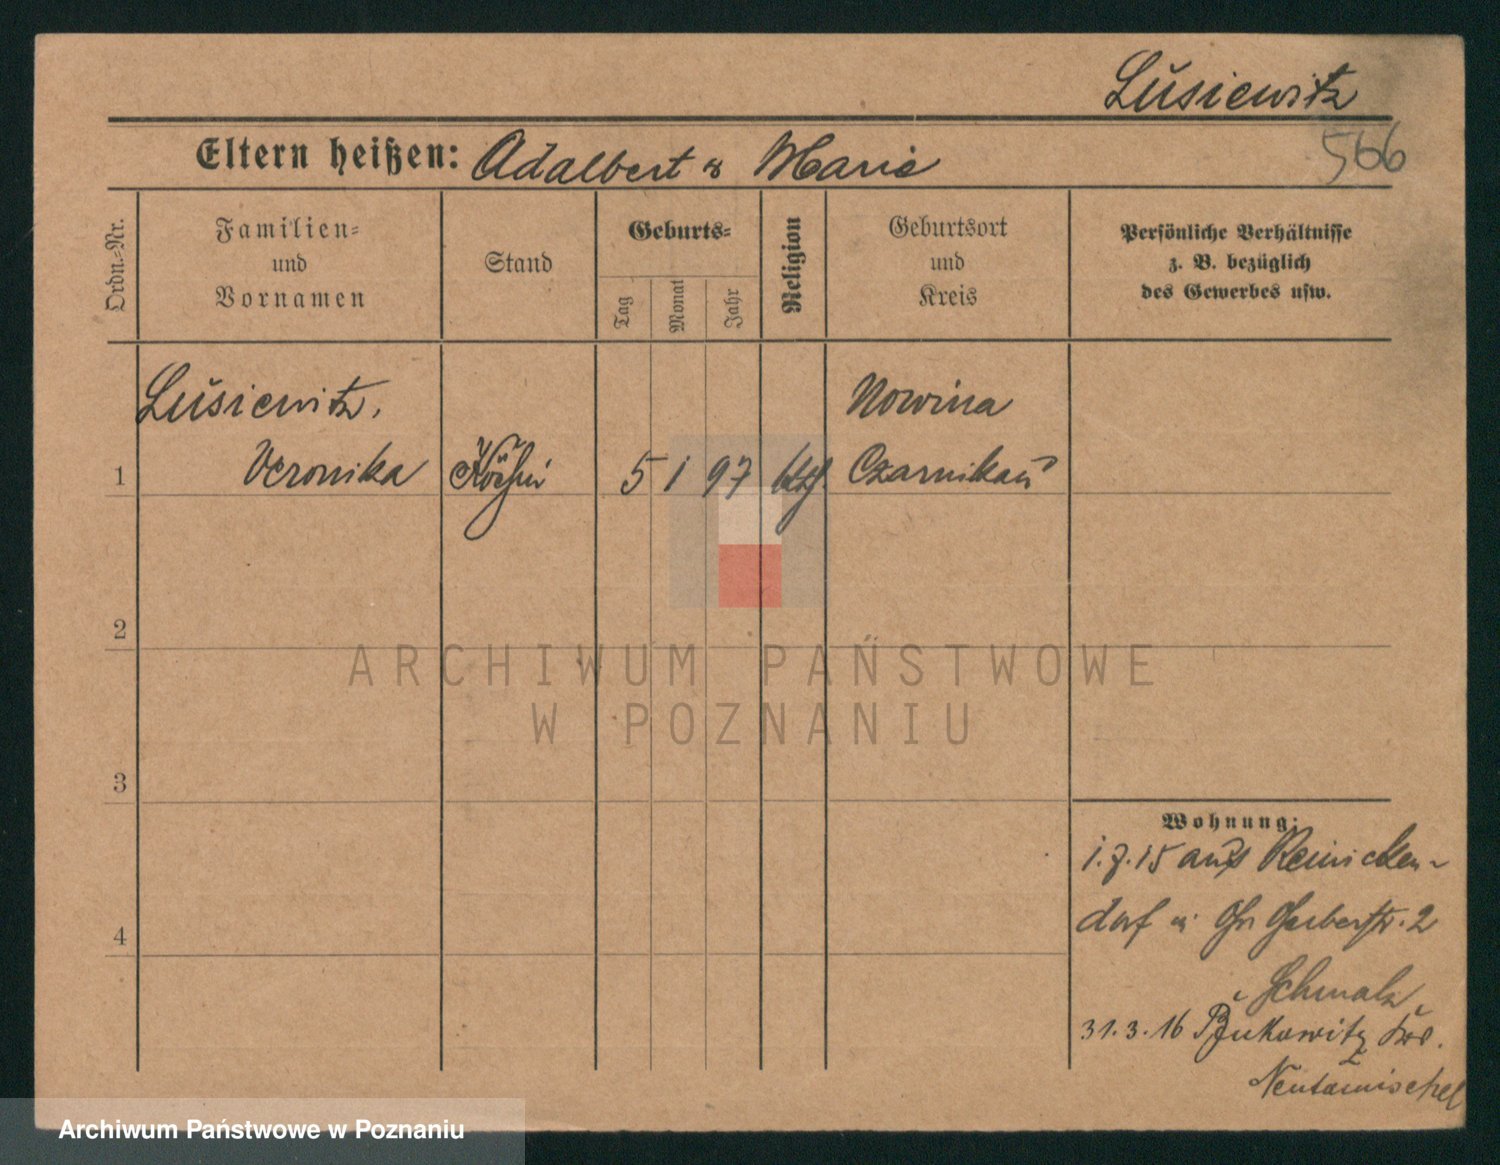 Lusiewitz
566
Eltern heißen: Adalbert & Marie
Ordn.-Nr.
Familien-
und
Vornamen
Stand
Geburts-
Tag
Monat
Jahr
Religion
Geburtsort
und
Kreis
Persönliche Verhältnisse
z. B. bezüglich
des Gewerbes usw.
Lusiewitz,
Veronika
Köchin
5 1 97
kth
Nowina
Czarnikau
1
2
3
4
Wohnung:
1.7.15 aus Reinicken-
dorf Gr Gerberstr. 2
Schmalz
31.3.16 Bukowitz Krs.
Neutomischel
ARCHIWUM PAŃSTWOWE
W POZNANIU
Archiwum Państwowe w Poznaniu